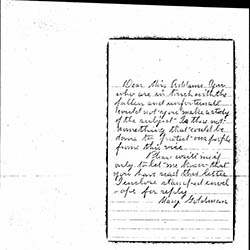 Dear Miss Addams. You
who are in touch with the
fallen and unfortunate
could not you make a study
of the subject. Is there not
something that could be
done to protect our people
from this vice.
Please write me if
only to let me know that
you have read this letter
I enclose stamped envel-
ope for reply.
Mary Goldman